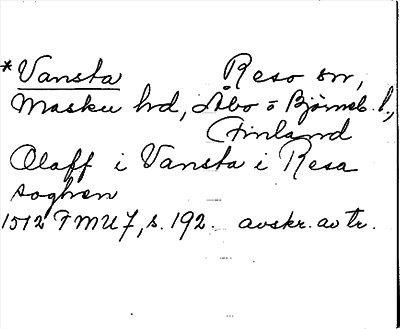 *Vansta Reso sn,
Masku hd, Åbo o Björneb. l.,
Finland
Olaff i Vansta i Resa
soghen
1512 FMU 7, s. 192. avskr. av tr.